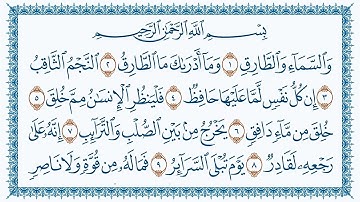 بِسْمِ ٱللَّهِ ٱلرَّحْمَٰنِ ٱلرَّحِيمِ
وَٱلسَّمَآءِ وَٱلطَّارِقِ ١ وَمَآ أَدْرَىٰكَ مَا ٱلطَّارِقُ ٢ ٱلنَّجْمُ ٱلثَّاقِبُ
٣ إِن كُلُّ نَفْسٍ لَّمَّا عَلَيْهَا حَافِظٌ ٤ فَلْيَنظُرِ ٱلْإِنسَٰنُ مِمَّ خُلِقَ ٥
خُلِقَ مِن مَّآءٍ دَافِقٍ ٦ يَخْرُجُ مِنۢ بَيْنِ ٱلصُّلْبِ وَٱلتَّرَآئِبِ ٧ إِنَّهُۥ عَلَىٰ
رَجْعِهِۦ لَقَادِرٌ ٨ يَوْمَ تُبْلَى ٱلسَّرَآئِرُ ٩ فَمَا لَهُۥ مِن قُوَّةٍ وَلَا نَاصِرٍ